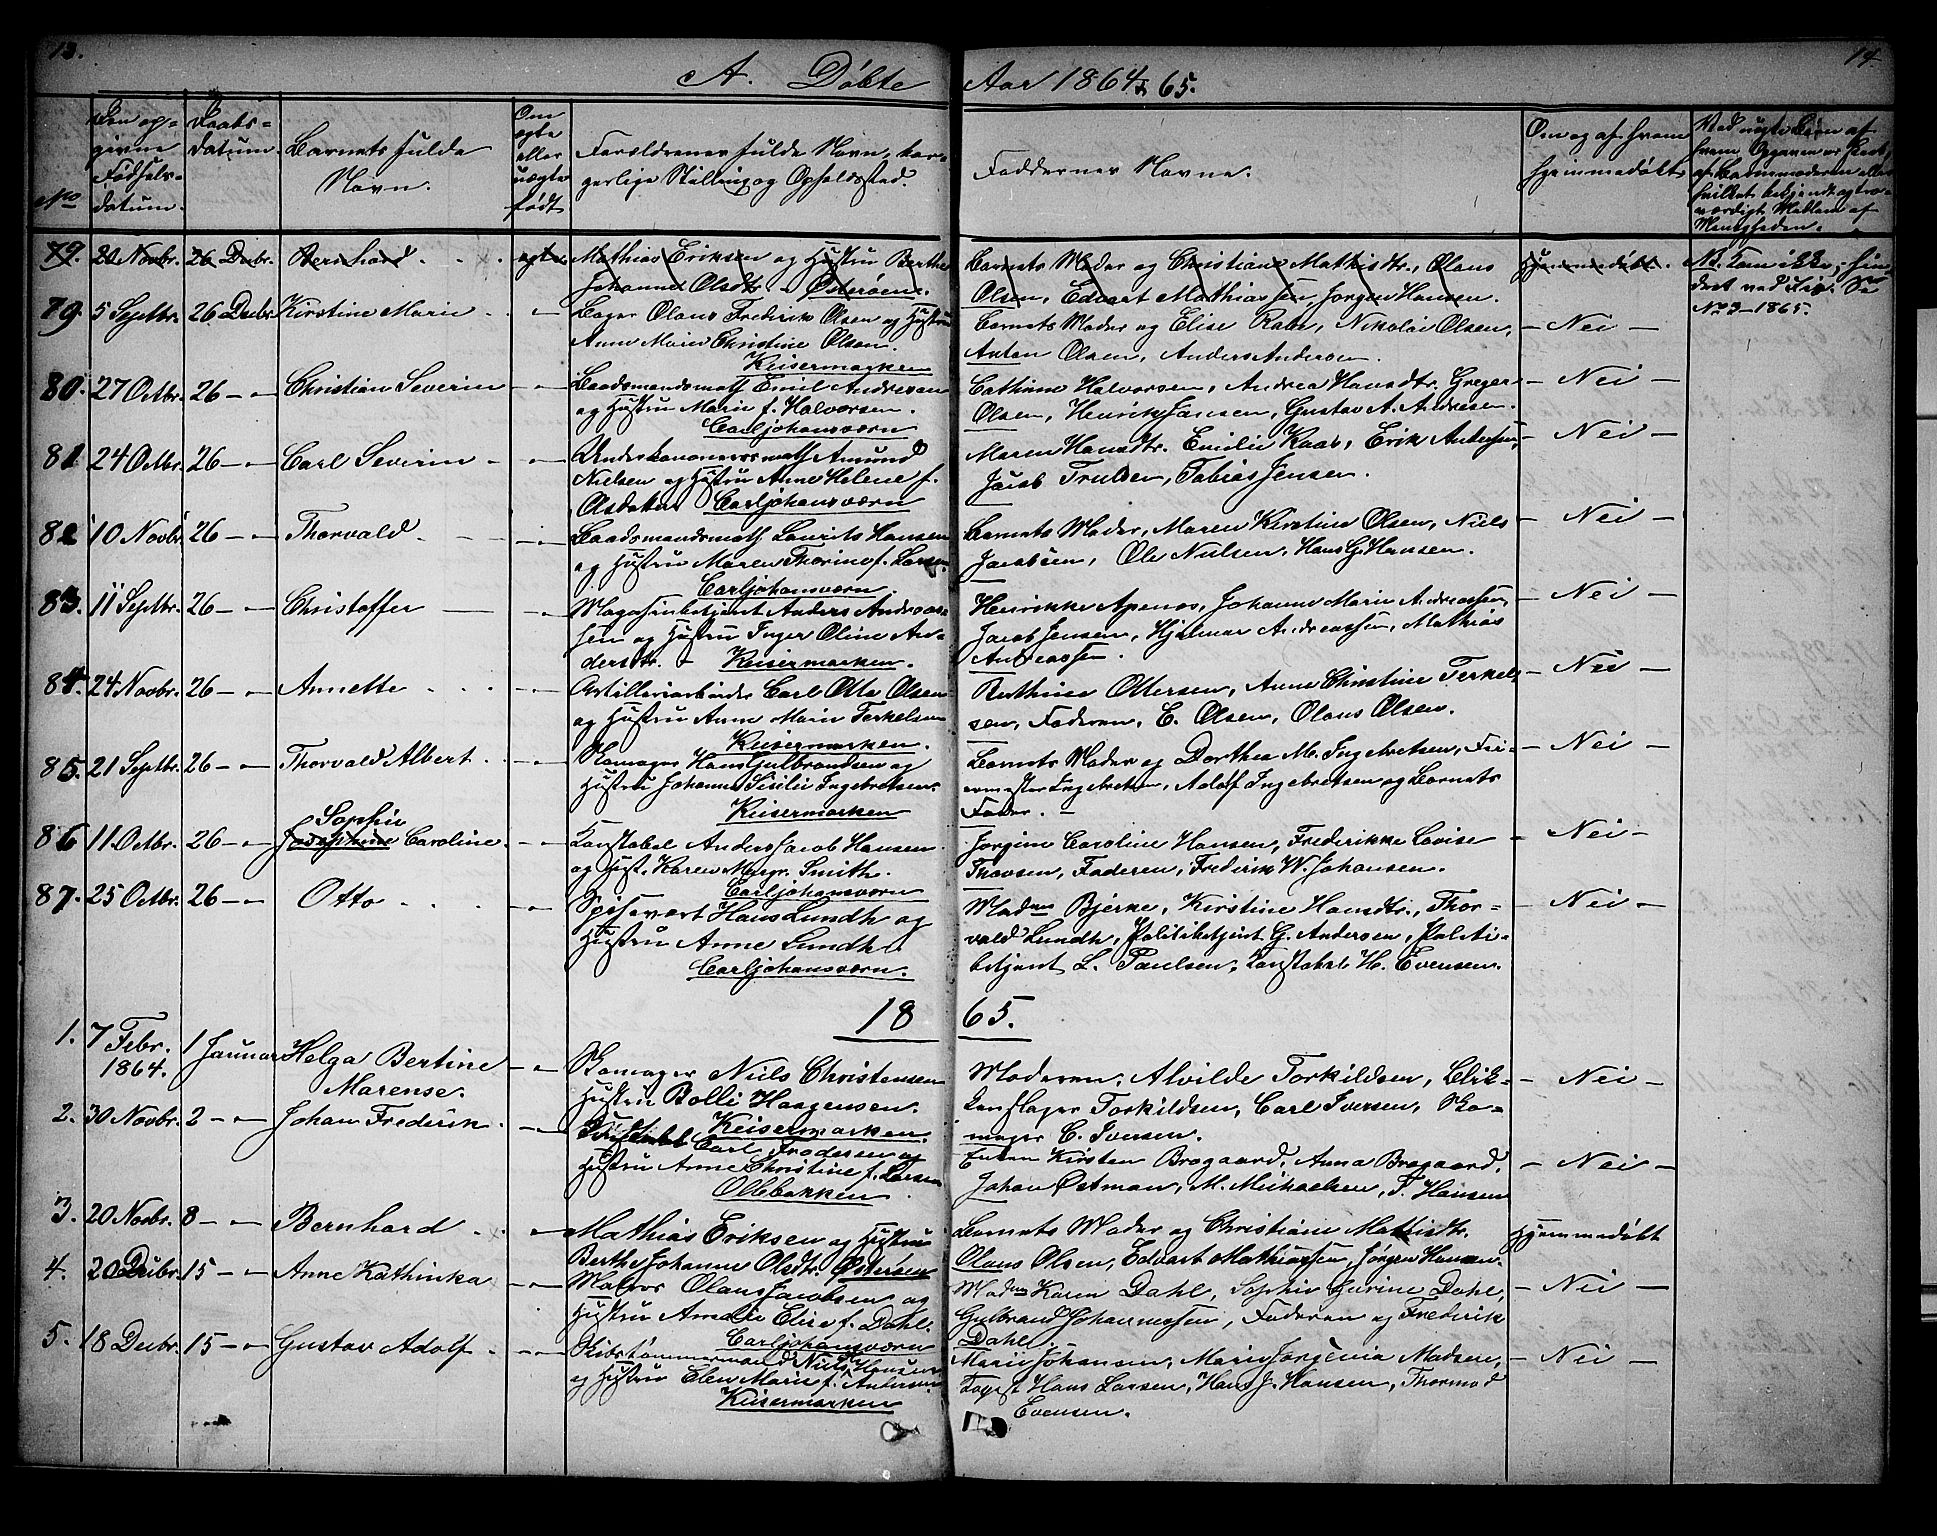 13.
14
A. Døbte
Aar 1864 & 65.
No
Den op-
givne
Fødsels-
datum.
Daabs-
datum.
Barnets fulde
Navn.
Om
ægte
eller
uægte
født
Forældrenes fulde Navn, bor-
gerlige Stilling og Opholdssted.
Faddernes Navne.
Om og af hvem
hjemmedøbt
Ved uægte Børn af
hvem Opgaven er skeet,
af Barnemoderen eller
hvilket bekjendt og tro-
værdigt Medlem af
Menigheden.
79. 20 Novbr. 26 Decbr. Bernhard ægte
Mathias Eriksen og Hustru Berthe
Johanne Olsdtr. Østerøen.
Barnets Moder og Christiane Mathisdtr., Olaus
Olsen, Edvart Mathiassen, Jørgen Hansen.
Hjemmedøbt.
NB. Kom ikke; hin-
dret ved Iis. Se
No 3-1865.
79. 5 Septbr. 26 Decbr. Kirstine Marie - -
Bager Olaus Frederik Olsen og Hustru
Anne Marie Christine Olsen.
Keisermarken
Barnets Moder og Elise Raae, Nikolai Olsen,
Anton Olsen, Anders Andersen.
- Nei -
80. 27 Octbr. 26 - " Christian Severin - -
Baadsmandsmath Emil Andresen
og Hustru Marie f. Halvorsen.
Carljohansværn
Cathrine Halvorsen, Andrea Hansdtr. Greger
Olsen, Henrik Jansen, Gustav A. Andresen.
- Nei -
81 24 Octbr. 26 - " Carl Severin - -
Underkanoneersmath Amund
Nielsen og Hustru Anne Helene f.
Carljohansværn
Maren Hansdtr. Emilie Raae, Erik Andersen,
Jacob Trulsen, Tobias Jensen.
- Nei -
82 10 Novbr. 26 - " Thorvald - -
Baadsmandsmath Laurits Hansen
og Hustru Maren Thorine f. Larsen
Carljohansværn
Barnets Moder, Maren Kirstine Olsen, Niels
Jacobsen, Ole Nielsen, Hans G. Hansen.
- Nei -
83. 11 Septbr. 26 - " Christoffer - -
Magasinbetjent Anders Andreas-
sen og Hustru Inger Oline An-
dersdtr. - Keisermarken.
Henrikke Apenes, Johanne Marie Andreassen,
Jacob Jensen, Hjalmar Andreassen, Mathias
Andreassen.
- Nei -
84. 24 Novbr. 26 - " Annette - -
Artilleriarbeider Carl Otto Olsen
og Hustru Anne Marie Terkelsen
Keisermarken.
Berthine Ottersen, Anne Christine Terkel-
sen, Faderen, E. Olsen, Olaus Olsen.
- Nei -
85. 21 Septbr. 26 - " Thorvald Albert - -
Skomager Hans Gulbrandsen og
Hustru Johanne Sesilie Ingebretsen.
Keisermarken
Barnets Moder og Dorthea M. Ingebretsen, Fei-
ermester Ingebretsen, Adolf Ingebretsen og Barnets
Fader. -
- Nei -
86 11 Octbr. 26 - " Sophie
Josephine Caroline - -
Konstabel Anders Jacob Hansen
og Hust. Karen Margr. Smith.
Carljohansværn
Jørgine Caroline Hansen, Frederikke Lovise
Thovsen, Faderen, Frederik W. Johansen.
- Nei -
87. 25 Octbr. 26 - " Otto - -
Spisevært Hans Lundh og
Hustru Anne Lundh.
Carljohansværn.
Madm Bjerke, Kirstine Hansdtr., Thor-
vald Lundh, Politibetjent G. Andersen, Politi-
betjent L. Paulsen, Konstabel H. Evensen.
- Nei -
1865.
1. 7 Febr.
1864. 1 Januar Helga Bertine
Marense. - -
Skomager Niels Christensen
Hustru Bolli Haagensen.
Keisermarken.
Moderen, Alvilde Torkildsen, Blik-
kenslager Torkildsen, Carl Iversen, Sko-
mager C. Iversen.
- Nei -
2. 30 Novbr. 2 - " Johan Frederik - -
Konstabel Carl Frodersen og
Hustru Anne Christine f. Larsen
Ollebakken
Enken Kirsten Bragaard, Anna Bragaard,
Johan Østman, M. Mickaelsen, T. Hansen
- Nei -
3. 20 Novbr. 8 - " Bernhard - -
Mathias Eriksen og Hustru
Berthe Johanne Olsdtr. Østerøen
Barnets Moder og Christiane Mathisdtr.
Olaus Olsen, Edvart Mathiassen, Jørgen Hansen.
Hjemmedøbt
4. 20 Decbr. 15 - " Anne Kathinka - -
Matros Olaus Jacobsen og
Hustru Amalie Elise f. Dahl.
Carljohansværn
Madm Karen Dahl, Sophie Gurine Dahl,
Gulbrand Johannessen, Faderen og Frederik
Dahl
- Nei -
5. 18 Decbr. 15 - " Gustav Adolf - -
Skibstømmermand Niels Hansen
og Hustru Elen Marie f. Andersen
Keisermarken
Marie Johansen, Marie Jørgenia Madsen,
Fogest Hans Larsen, Hans J. Hansen, Thormod
Evensen.
- Nei -